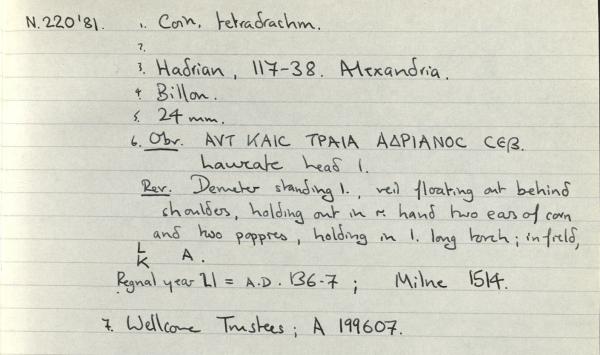 N.220'81. 1. Coin, tetradrachm.
2.
3. Hadrian, 117-38. Alexandria.
4. Billon.
5. 24 mm.
6. Obv. ΑVΤ ΚΑΙϹ ΤΡΑΙΑ ΑΔΡΙΑΝΟϹ ϹΕΒ.
Laureate head l.
Rev. Demeter standing l., veil floating out behind
shoulders, holding out in r. hand two ears of corn
and two poppies, holding in l. long torch; in field,
L
K A.
Regnal year 21 = A.D. 136-7; Milne 1514.
7. Wellcome Trustees; A 199607.